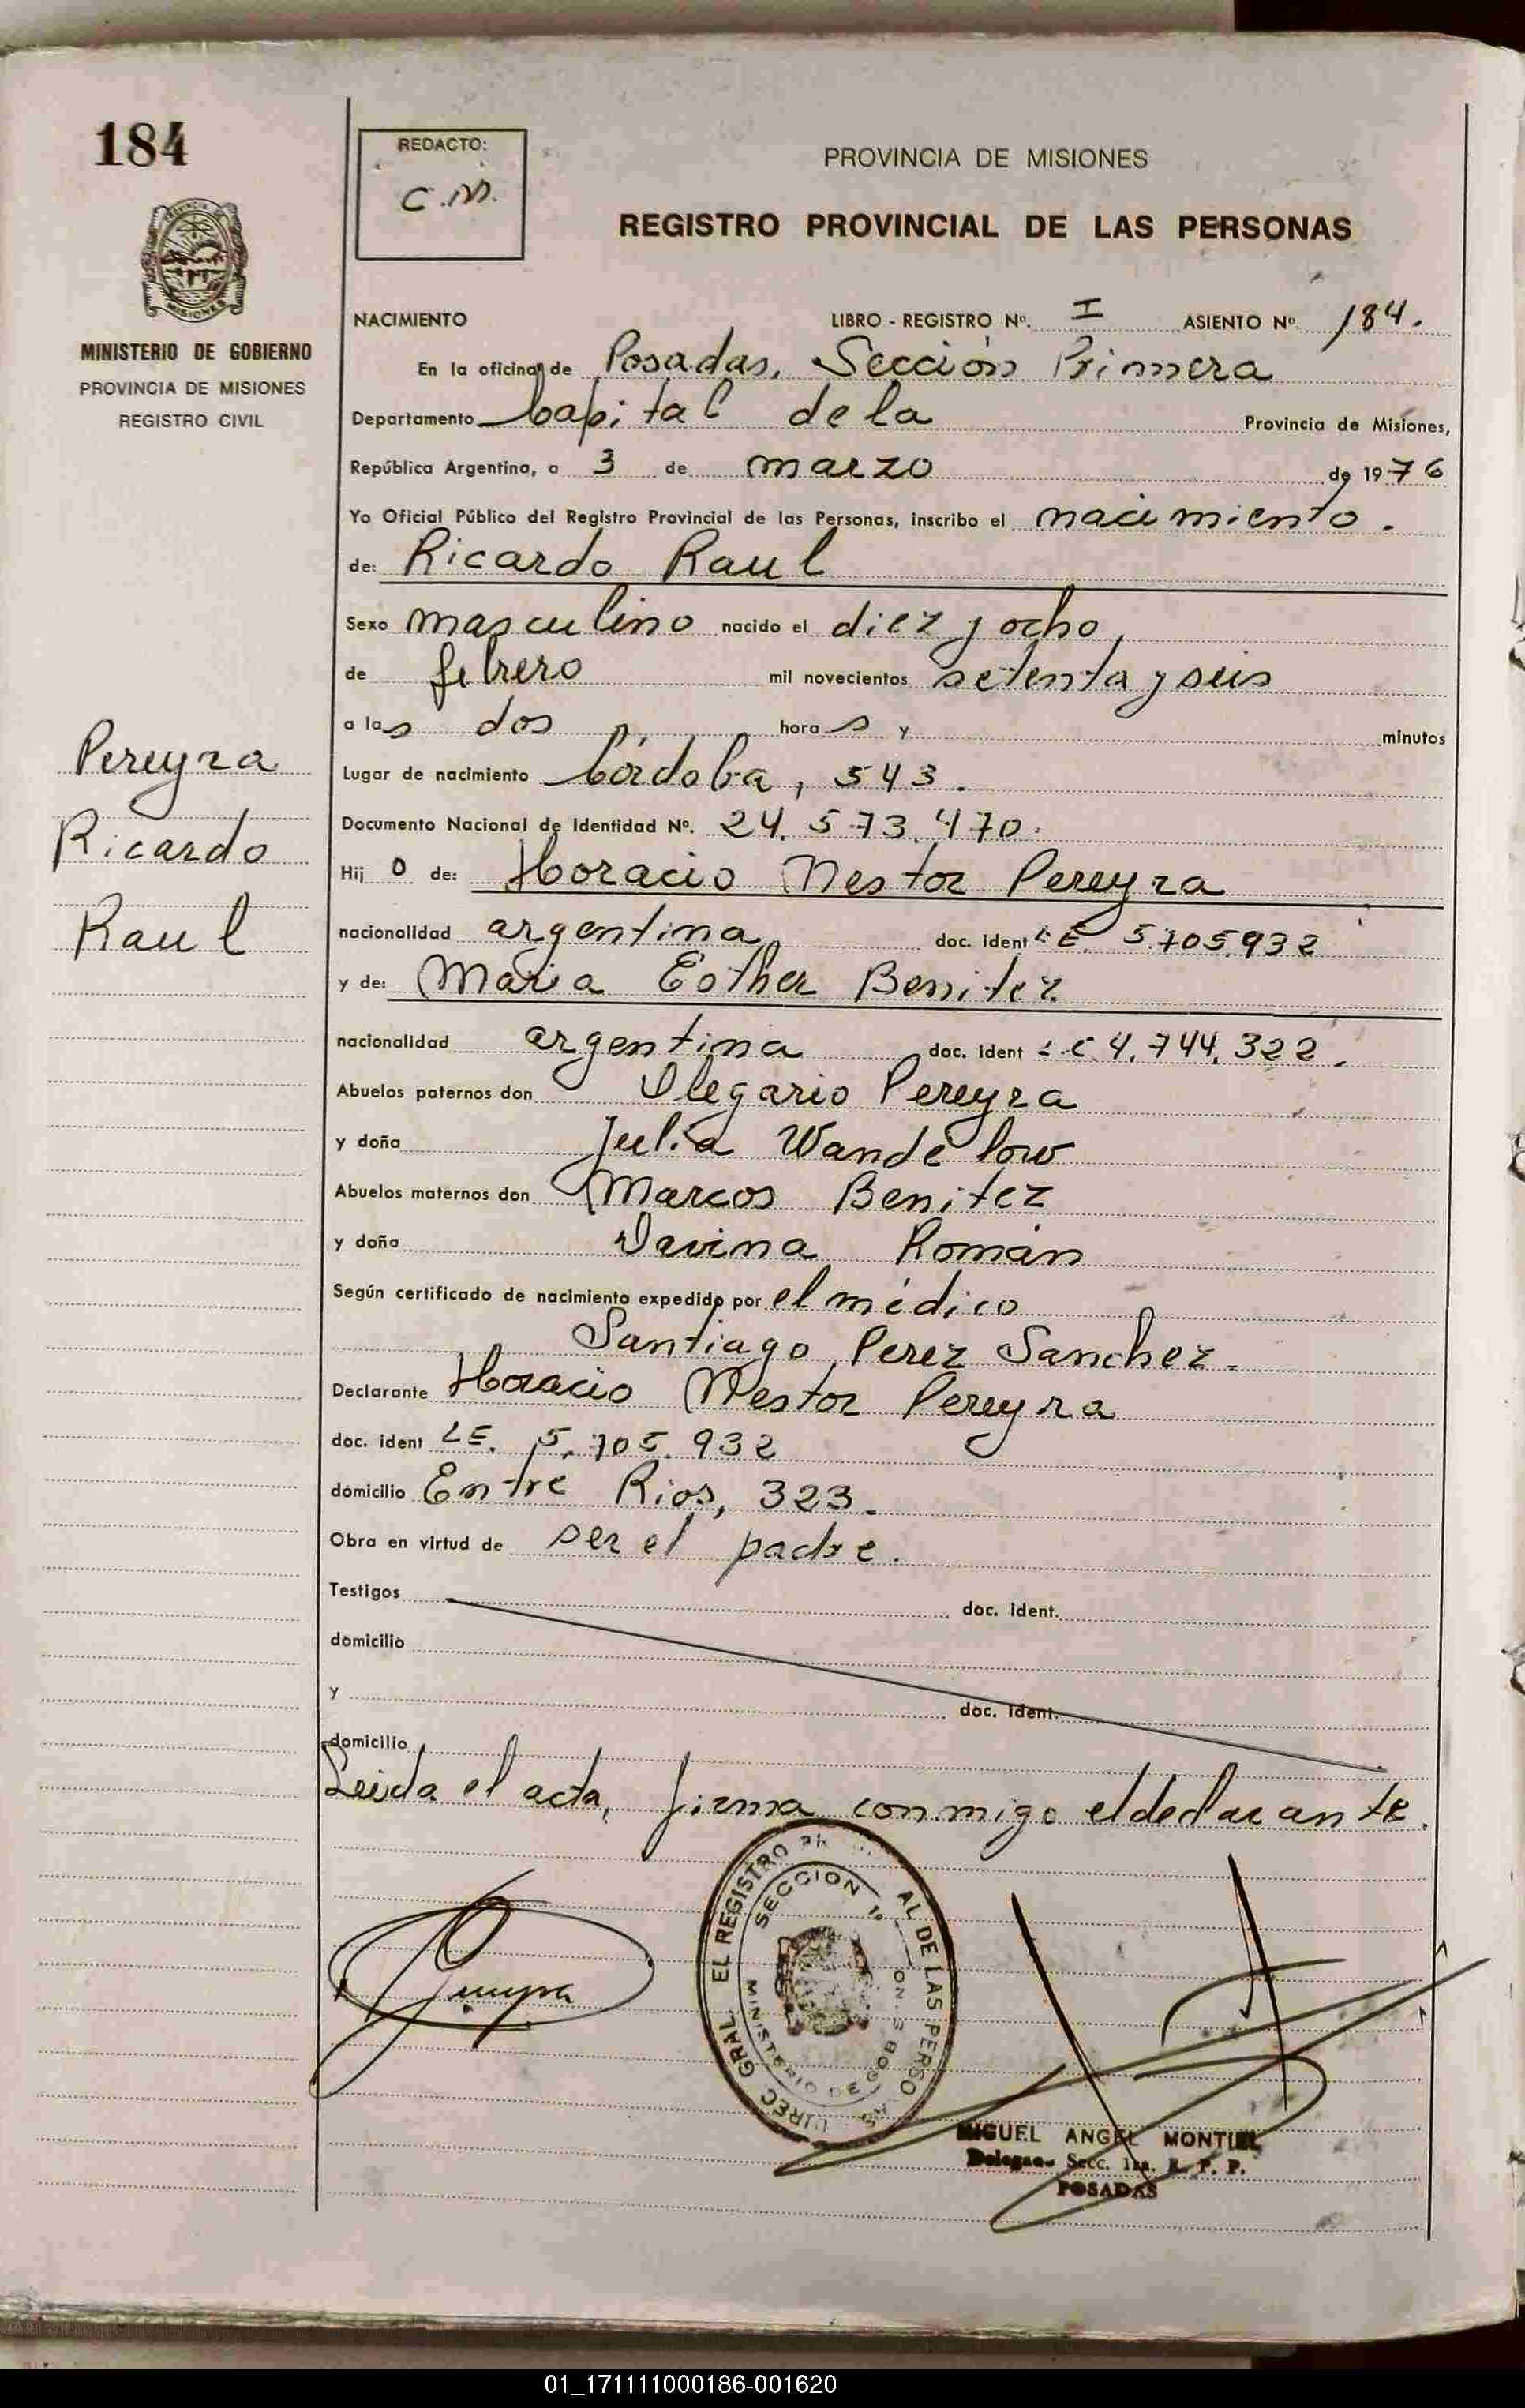 184
REDACTO:
C.M.
PROVINCIA DE MISIONES
REGISTRO PROVINCIAL DE LAS PERSONAS
MISIONES
MINISTERIO DE GOBIERNO
PROVINCIA DE MISIONES
REGISTRO CIVIL
NACIMIENTO LIBRO - REGISTRO Nº. I ASIENTO Nº 184.
En la oficina de Posadas, Sección Primera
Departamento Capital de la Provincia de Misiones,
República Argentina, a 3 de marzo de 1976
Yo Oficial Público del Registro Provincial de las Personas, inscribo el nacimiento.
de: Ricardo Raul
Sexo masculino nacido el diez y ocho,
de febrero mil novecientos setenta y seis
a las dos horas y minutos
Lugar de nacimiento Córdoba, 543.
Documento Nacional de Identidad Nº. 24.573.470.
Hijo de: Horacio Nestor Pereyra
nacionalidad argentina doc. ident L.E. 5.705.932
y de: Maria Esther Benitez
nacionalidad argentina doc. ident L.C. 4.744.322.
Abuelos paternos don Olegario Pereyra
y doña Julia Wandelow
Abuelos maternos don Marcos Benitez
y doña Davina Román
Según certificado de nacimiento expedido por el médico
Santiago Perez Sanchez.
Declarante Horacio Nestor Pereyra
doc. ident L.E. 5.705.932
domicilio Entre Rios, 323.
Obra en virtud de ser el padre.
Testigos doc. ident.
domicilio
y doc. ident.
domicilio
Leida el acta, firma conmigo el declarante.
Pereyra
Ricardo
Raul
DIREC GRAL EL REGISTRO AL DE LAS PERSO AS
SECCION 1ª
MINISTERIO DE GOB
MIGUEL ANGEL MONTIEL
Secc. 1ra. R. P. P.
POSADAS
01_171111000186-001620